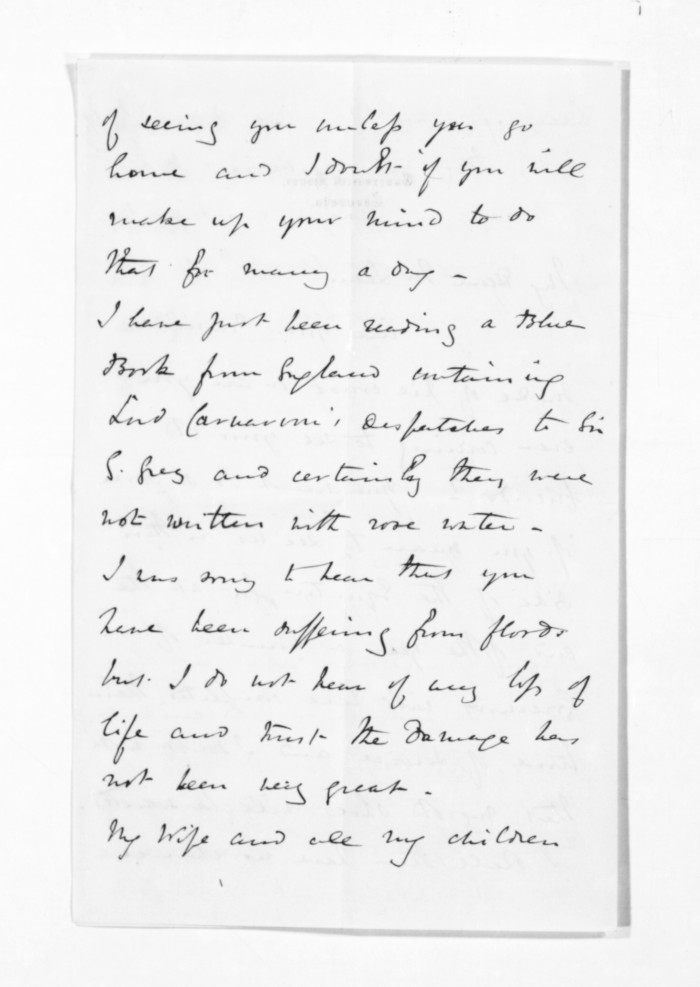 of seeing you unless you go
home and I doubt if you will
make up your mind to do
that for many a day -
I have just been reading a Blue
Book from England containing
Lord Carnarvon's despatches to Sir
G. Grey and certainly they were
not written with rose water -
I was sorry to hear that you
have been suffering from floods
but I do not hear of any loss of
life and trust the damage has
not been very great -
My Wife and all my children